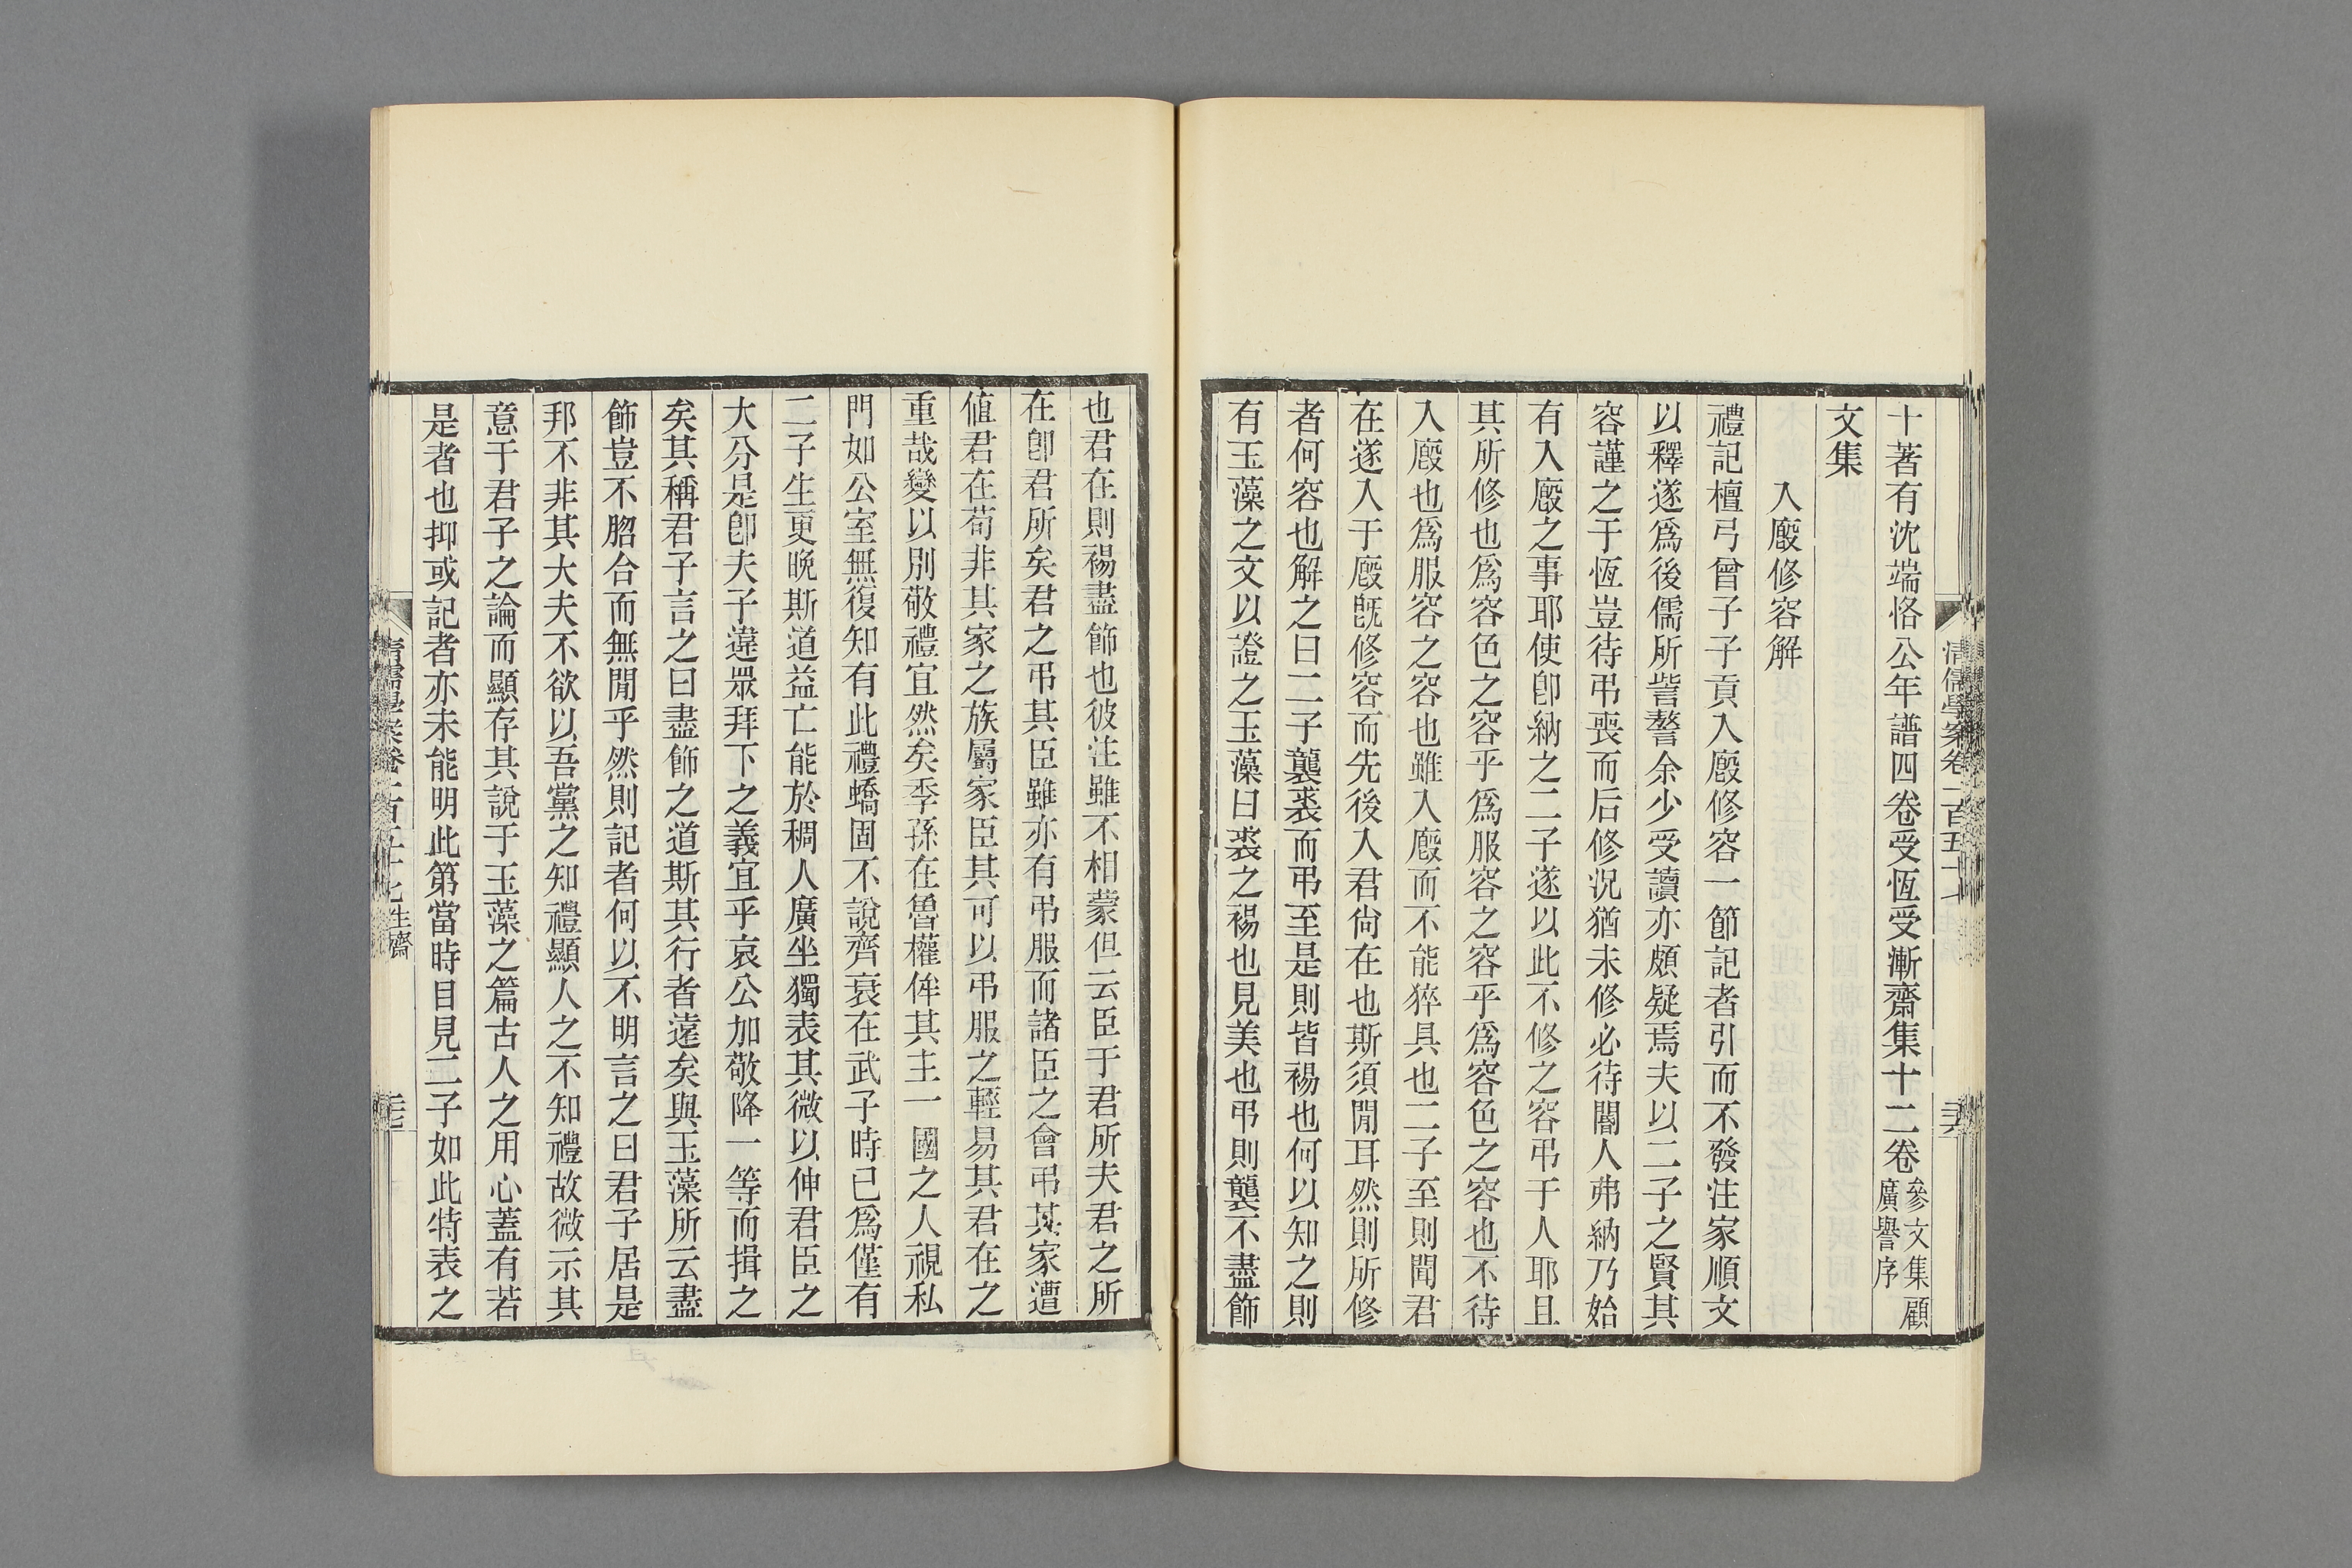 十著有沈端恪公年譜四卷受恆受漸齋集十二卷參文集顧廣譽序
文集
入廄修容解
禮記檀弓曾子子貢入廄修容一節記者引而不發注家順文
以釋遂爲後儒所訾謷余少受讀亦頗疑焉夫以二子之賢其
容謹之于恆豈待弔喪而后修況猶未修必待閽人弗納乃始
有入廄之事耶使卽納之二子遂以此不修之容弔于人耶且
其所修也爲容色之容乎爲服容之容乎爲容色之容也不待
入廄也爲服容之容也雖入廄而不能猝具也二子至則聞君
在遂入于廄旣修容而先後入君尙在也斯須閒耳然則所修
者何容也解之曰二子襲裘而弔至是則皆裼也何以知之則
有玉藻之文以證之玉藻曰裘之裼也見美也弔則襲不盡飾
清儒學案卷一百五十七
也君在則裼盡飾也彼注雖不相蒙但云臣于君所夫君之所
在卽君所矣君之弔其臣雖亦有弔服而諸臣之會弔其家遭
値君在苟非其家之族屬家臣其可以弔服之輕易其君在之
重哉變以別敬禮宜然矣季孫在魯權侔其主一國之人視私
門如公室無復知有此禮蟜固不說齊衰在武子時已爲僅有
二子生更晩斯道益亡能於稠人廣坐獨表其微以伸君臣之
大分是卽夫子違眾拜下之義宜乎哀公加敬降一等而揖之
矣其稱君子言之曰盡飾之道斯其行者遠矣與玉藻所云盡
飾豈不脗合而無閒乎然則記者何以不明言之曰君子居是
邦不非其大夫不欲以吾黨之知禮顯人之不知禮故微示其
意于君子之論而顯存其說于玉藻之篇古人之用心蓋有若
是者也抑或記者亦未能明此第當時目見二子如此特表之